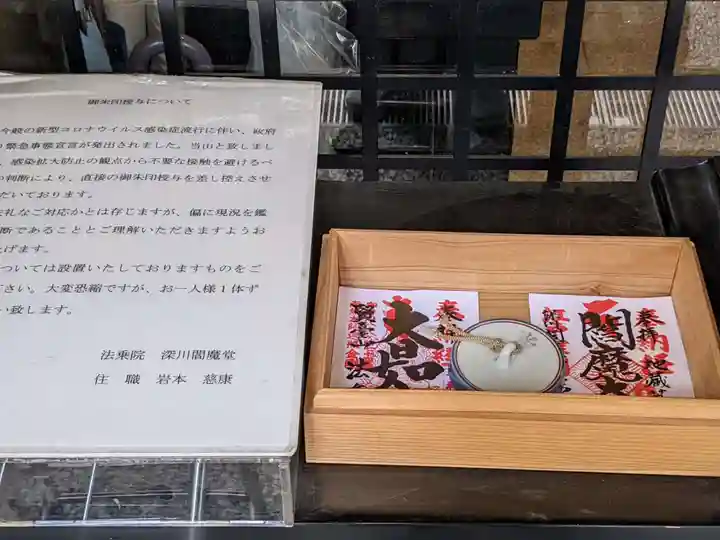 御朱印授与について
今般の新型コロナウイルス感染症流行に伴い、政府
緊急事態宣言が発出されました。当山と致しまし
、感染拡大防止の観点から不要な接触を避けるべ
の判断により、直接の御朱印授与を差し控えさせ
だいております。
礼なご対応かとは存じますが、偏に現況を鑑
断であることとご理解いただきますようお
げます。
ついては設置いたしておりますものをご
さい。大変恐縮ですが、お一人様1体ず
い致します。
法乗院 深川閻魔堂
住 職 岩本 慈康
奉
大日如
法
奉納
閻魔